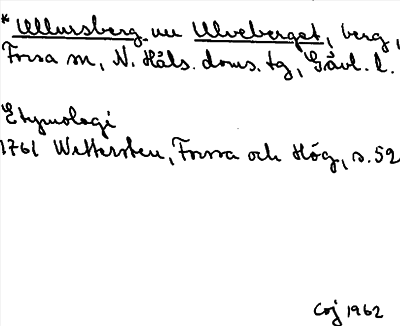 * Ullursberg nu Ulveberget, berg,
Forsa sn, N. Häls. doms. tg, Gävl. l.
Etymologi
1761 Wettersten, Forssa och Hög, s. 52
CoJ 1962